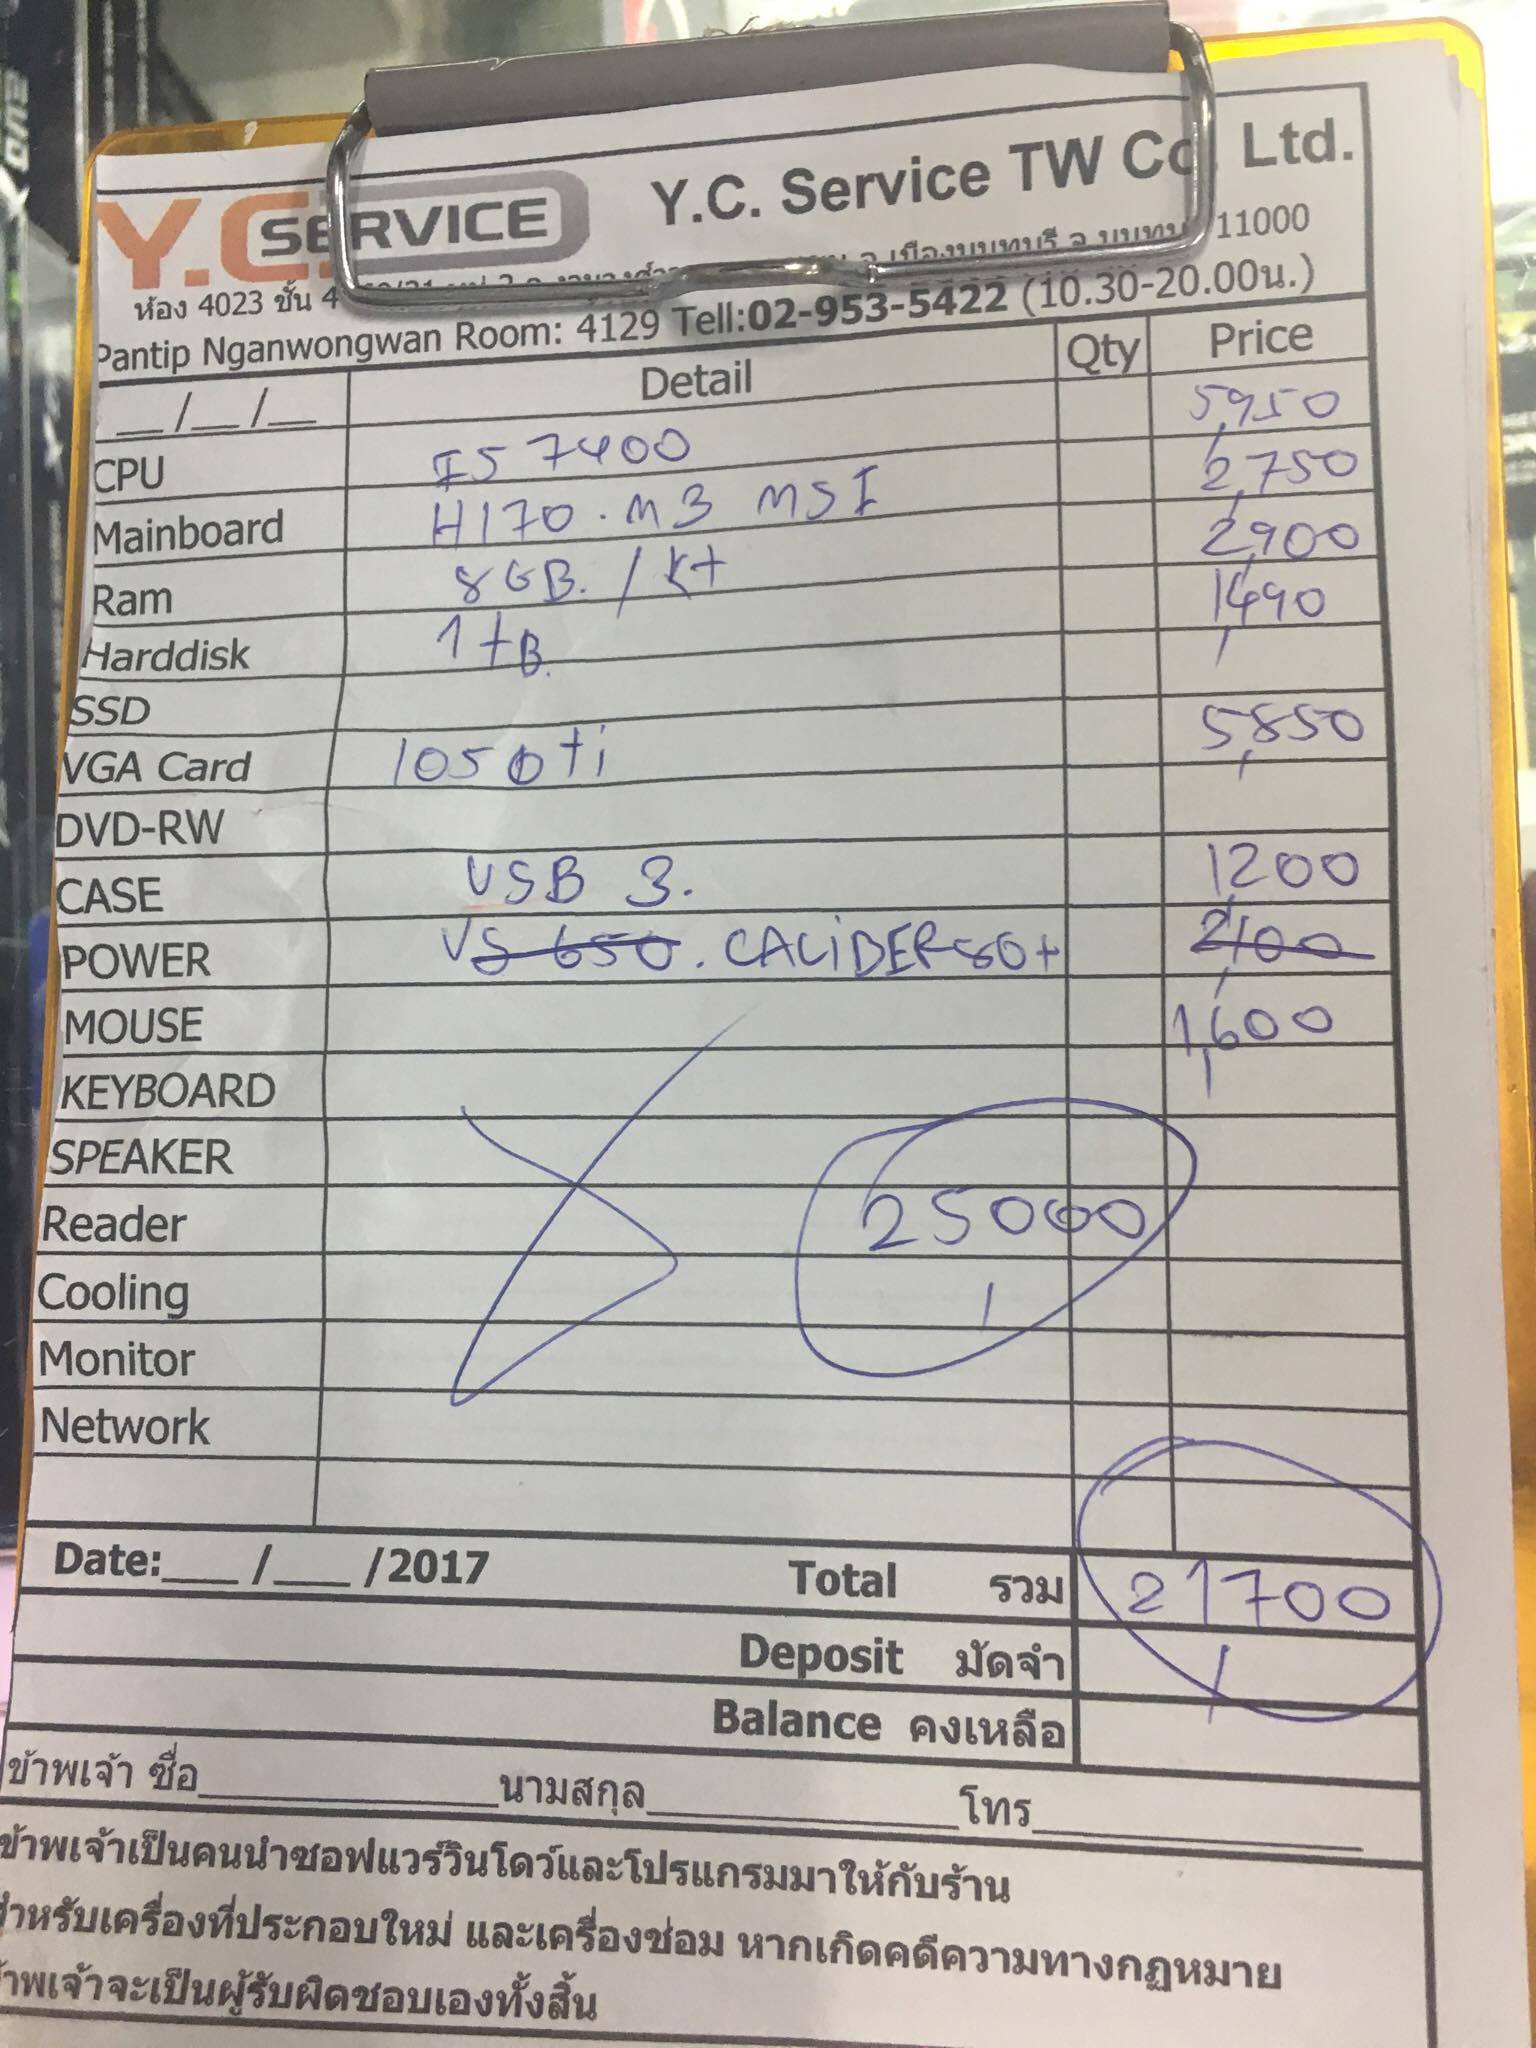 Y.C. SERVICE Y.C. Service TW Co. Ltd.
ห้อง 4023 ชั้น 4 11000
Pantip Nganwongwan Room: 4129 Tell:02-953-5422 (10.30-20.00น.)
__/__/__ Detail Qty Price
CPU I5 7400 5,950
Mainboard H170.M3 MSI 2,750
Ram 8GB./Kt 2,900
Harddisk 1tB. 1,490
SSD
VGA Card 1050ti 5,850
DVD-RW
CASE USB 3. 1,200
POWER VS 650. CALIBER 80+ 2,100
MOUSE 1,600
KEYBOARD
SPEAKER
Reader 25000
Cooling
Monitor
Network
Date:___/___/2017 Total รวม 21700
Deposit มัดจำ
Balance คงเหลือ
ข้าพเจ้า ชื่อ__________นามสกุล__________โทร__________
ข้าพเจ้าเป็นคนนำซอฟแวร์วินโดว์และโปรแกรมมาให้กับร้าน
สำหรับเครื่องที่ประกอบใหม่ และเครื่องซ่อม หากเกิดคดีความทางกฏหมาย
ข้าพเจ้าจะเป็นผู้รับผิดชอบเองทั้งสิ้น